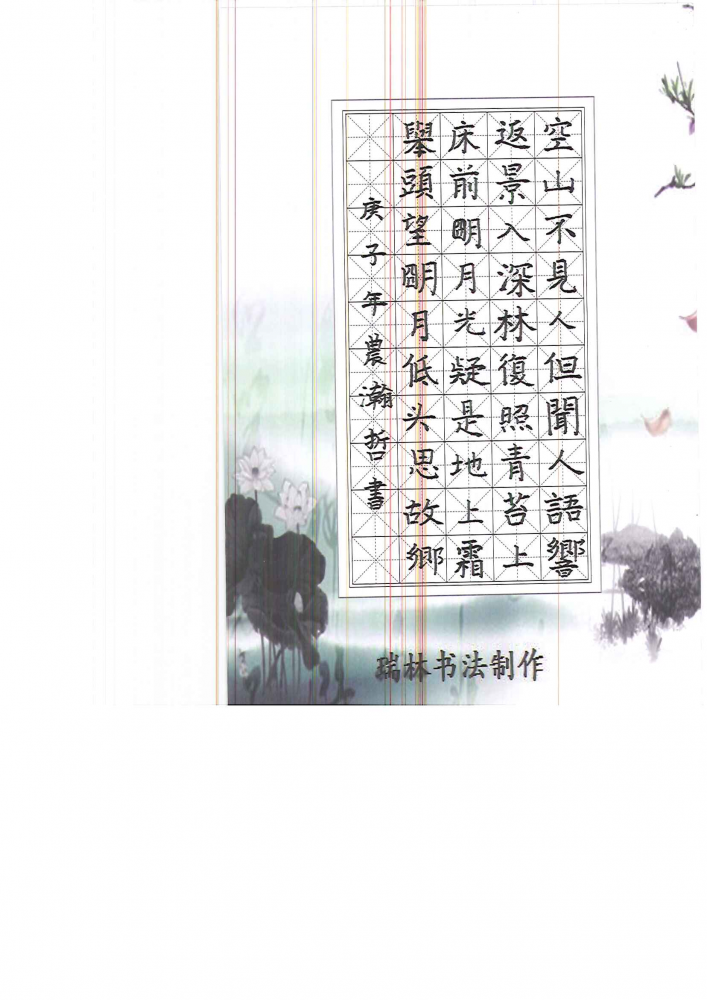 空山不見人但聞人語響
返景入深林復照青苔上
床前明月光疑是地上霜
舉頭望明月低头思故鄉
庚子年農瀚哲書
瑞林书法制作